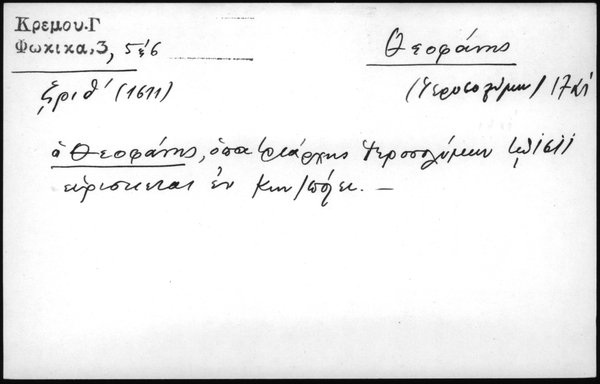 Κρεμου.Γ
Φωκικα,3, 5 & 6
Θεοφάνης
(Ἱεροσολύμων) 17
(1611)
ὁ Θεοφάνης, ὁ πατριάρχης Ἱεροσολύμων
εὑρίσκεται ἐν Κων/πόλει. —